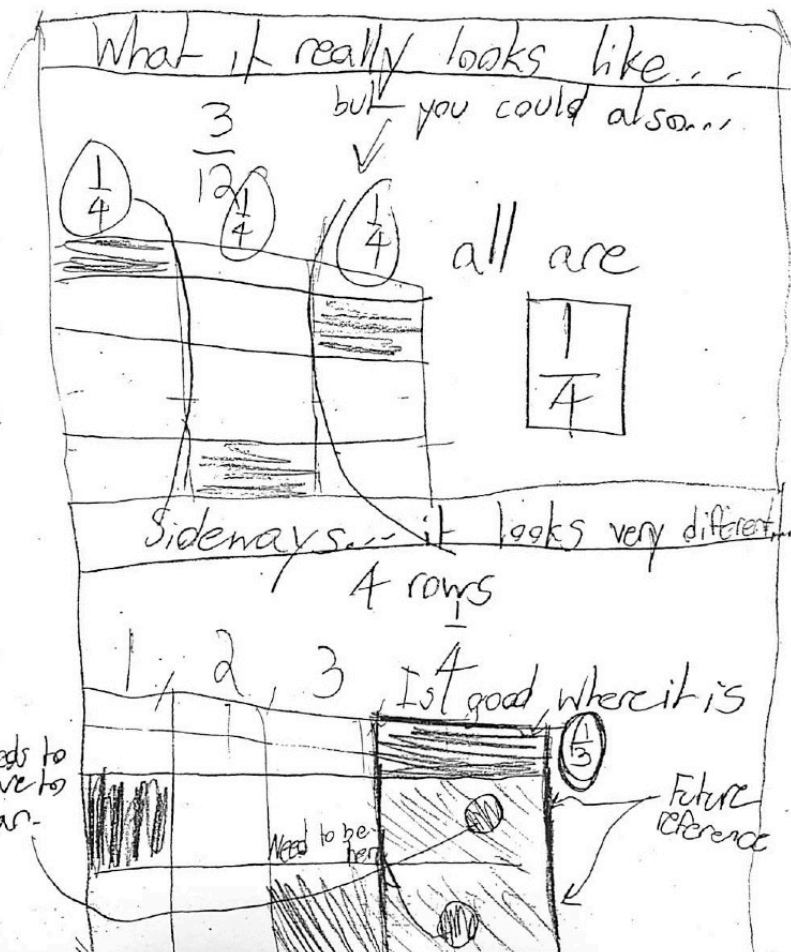 What it really looks like...
but you could also...
3
12
1
4
1
4
1
4
all are
1
4
Sideways... it looks very different...
4 rows
1
4
1 2 3 4
Is good where it is
1
3
to
to
Need to be
Future
reference